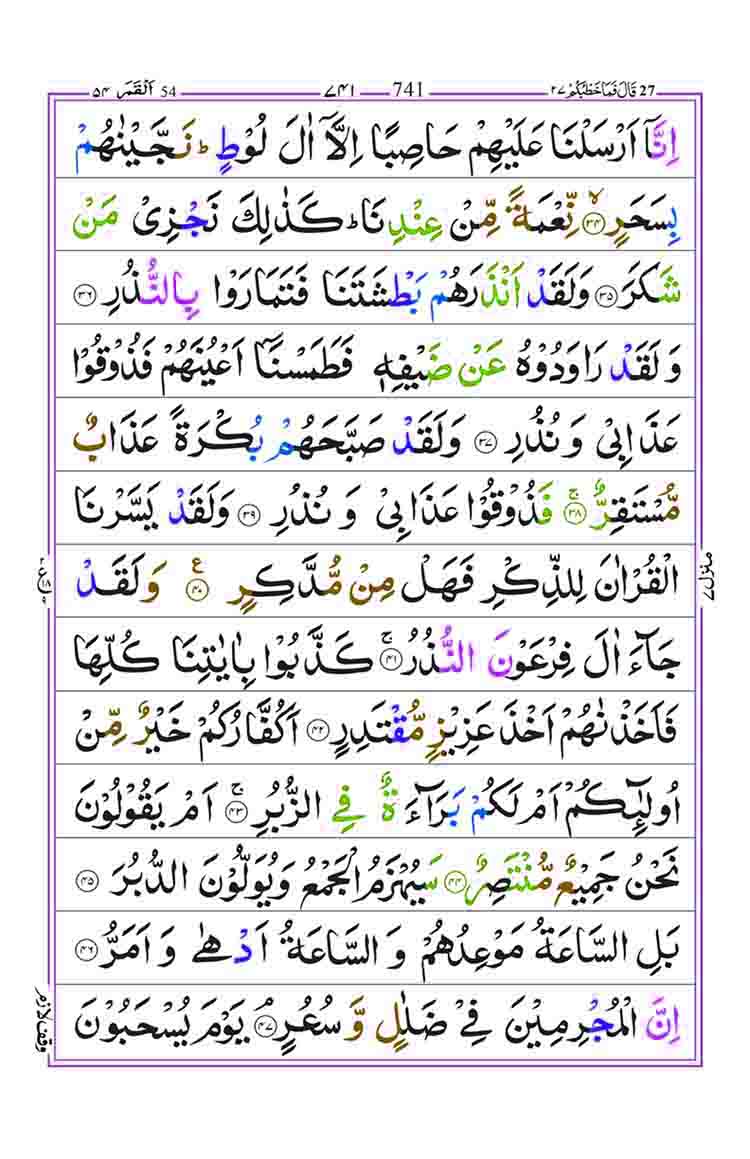 27 قَالَ فَمَا خَطْبُكُمْ ۲۷ 741 ۷۴۱ 54 اَلْقَمَر ۵۴
اِنَّاۤ اَرْسَلْنَا عَلَيْهِمْ حَاصِبًا اِلَّاۤ اٰلَ لُوْطٍ ؕ نَجَّيْنٰهُمْ
بِسَحَرٍ ۙ‏﴿۳۴﴾ نِّعْمَةً مِّنْ عِنْدِنَا ؕ كَذٰلِكَ نَجْزِىْ مَنْ
شَكَرَ ﴿۳۵﴾ وَلَقَدْ اَنْذَرَهُمْ بَطْشَتَنَا فَتَمَارَوْا بِالنُّذُرِ ﴿۳۶﴾
وَ لَقَدْ رَاوَدُوْهُ عَنْ ضَيْفِهٖ فَطَمَسْنَاۤ اَعْيُنَهُمْ فَذُوْقُوْا
عَذَابِىْ وَ نُذُرِ ﴿۳۷﴾ وَلَقَدْ صَبَّحَهُمْ بُكْرَةً عَذَابٌ
مُّسْتَقِرٌّ ۚ‏﴿۳۸﴾ فَذُوْقُوْا عَذَابِىْ وَ نُذُرِ ﴿۳۹﴾ وَلَقَدْ يَسَّرْنَا
الْقُرْاٰنَ لِلذِّكْرِ فَهَلْ مِنْ مُّدَّكِرٍ ﴿۴۰﴾ ع وَ لَقَدْ
جَآءَ اٰلَ فِرْعَوْنَ النُّذُرُ ۚ‏﴿۴۱﴾ كَذَّبُوْا بِاٰيٰتِنَا كُلِّهَا
فَاَخَذْنٰهُمْ اَخْذَ عَزِيْزٍ مُّقْتَدِرٍ ﴿۴۲﴾ اَكُفَّارُكُمْ خَيْرٌ مِّنْ
اُولٰٓئِكُمْ اَمْ لَكُمْ بَرَآءَةٌ فِى الزُّبُرِ ۚ‏﴿۴۳﴾ اَمْ يَقُوْلُوْنَ
نَحْنُ جَمِيْعٌ مُّنْتَصِرٌ ﴿۴۴﴾ سَيُهْزَمُ الْجَمْعُ وَيُوَلُّوْنَ الدُّبُرَ ﴿۴۵﴾
بَلِ السَّاعَةُ مَوْعِدُهُمْ وَ السَّاعَةُ اَدْهٰى وَ اَمَرُّ ﴿۴۶﴾
اِنَّ الْمُجْرِمِيْنَ فِىْ ضَلٰلٍ وَّ سُعُرٍ ۘ‏﴿۴۷﴾ يَوْمَ يُسْحَبُوْنَ
منزل ۷
وقف لازم